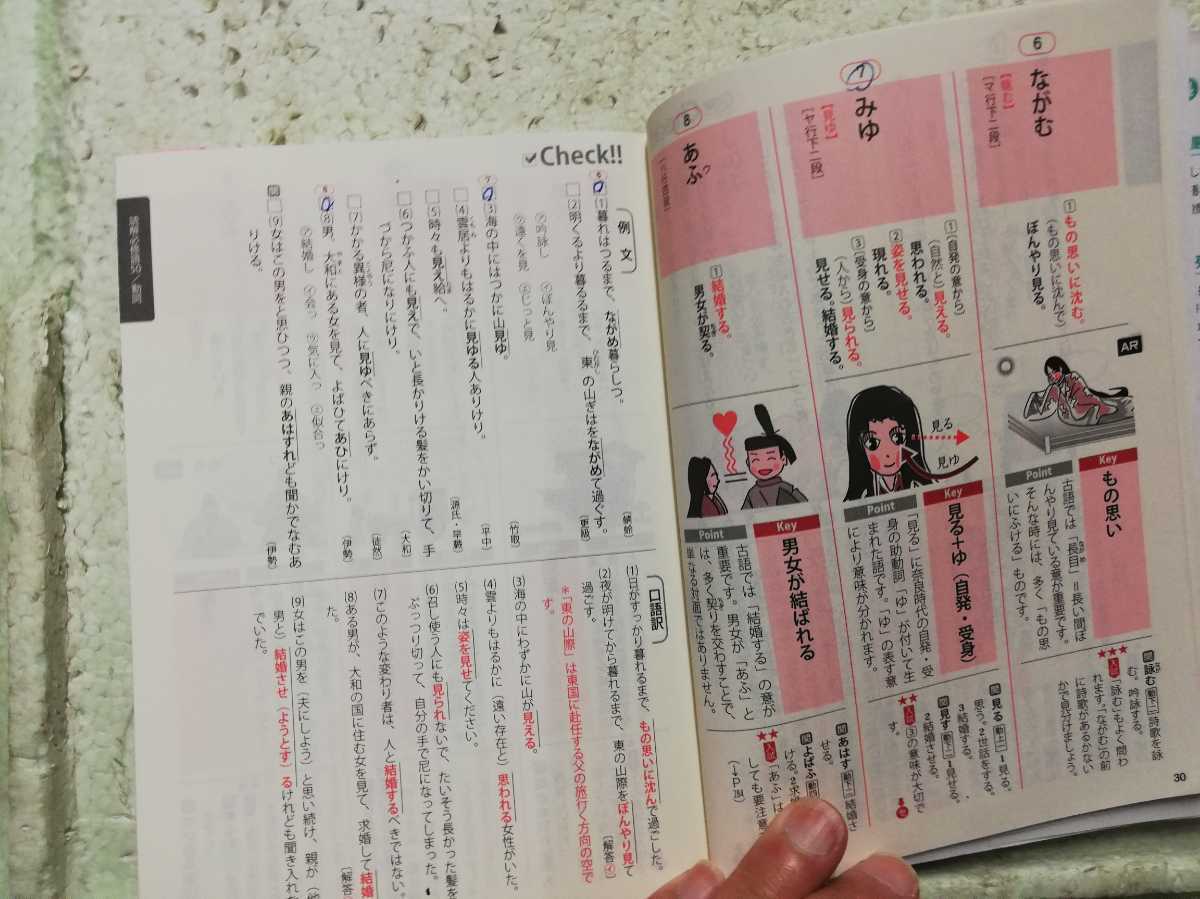 6
ながむ
【眺む】
［マ行下二段］
1 もの思いに沈む。
（もの思いに沈んで）
ぼんやり見る。
AR
Key
もの思い
Point
古語では「長目」＝長い間ぼ
んやり見ている意が重要です。
そんな時には、多く「もの思
いにふける」ものです。
関 詠む［動下二］詩歌を詠
む。吟詠する。
★★★
入試「詠む」もよく問わ
れます。「ながむ」の前
に詩歌があるかない
かで見分けましょう。
30
7
みゆ
【見ゆ】
［ヤ行下二段］
1（自発の意から）
（自然と）見える。
思われる。
2 姿を見せる。
現れる。
3（受身の意から）
（人から）見られる。
見せる。結婚する。
見る
見ゆ
Key
見る＋ゆ（自発・受身）
Point
「見る」に奈良時代の自発・受
身の助動詞「ゆ」が付いて生
まれた語です。「ゆ」の表す意
により意味が分かれます。
関 見る［動上一］1見る。
思う。2世話をする。
3結婚する。
関 見す［動下二］1見せる。
2結婚させる。
★★
入試 3の意味が大切で
す。
8
あふ
ワ
1 結婚する。
男女が契る。
Key
男女が結ばれる
Point
古語では「結婚する」の意が
重要です。男女が「あふ」と
は、多く契りを交わすことで、
単なる対面ではありません。
関 あはす［動下二］結婚さ
せる。
関 よばふ［動四］
ける。2求
★★
入試「あふ」は
しても要注意
（→P.284）
Check!!
例文
6
(1)暮れはつるまで、ながめ暮らしつ。
（蜻蛉）
(2)明くるより暮るるまで、東の山ぎはをながめて過ぐす。
（更級）
㋐吟詠し ㋑ぼんやり見
㋒遠くを見 ㋓じっと見
7
(3)海の中にはつかに山見ゆ。
（竹取）
(4)雲居よりもはるかに見ゆる人ありけり。
（平中）
(5)時々も見え給へ。
（源氏・早蕨）
(6)つかふ人にも見えで、いと長かりける髪をかい切りて、手
づから尼になりにけり。
（大和）
(7)かかる異様の者、人に見ゆべきにあらず。
（徒然）
8
(8)男、大和にある女を見て、よばひてあひにけり。
（伊勢）
㋐結婚し ㋑合っ ㋒気に入っ ㋓似合っ
関
(9)女はこの男をと思ひつつ、親のあはすれども聞かでなむあ
りける。
（伊勢）
口語訳
(1)日がすっかり暮れるまで、もの思いに沈んで過ごした。
(2)夜が明けてから暮れるまで、東の山際をぼんやり見て
過ごす。
［解答㋑］
＊「東の山際」は東国に赴任する父の旅行く方向の空で
す。
(3)海の中にわずかに山が見える。
(4)雲よりもはるかに（遠い存在と）思われる女性がいた。
(5)時々は姿を見せてください。
(6)召し使う人にも見られないで、たいそう長かった髪を
ぷっつり切って、自分の手で尼になってしまった。
(7)このような変わり者は、人と結婚するべきではない。
(8)ある男が、大和の国に住む女を見て、求婚して結婚
た。
［解答
(9)女はこの男を（夫にしよう）と思い続け、親が（他
男と）結婚させ（ようとす）るけれども聞き入れな
でいた。
読解必修語50／動詞